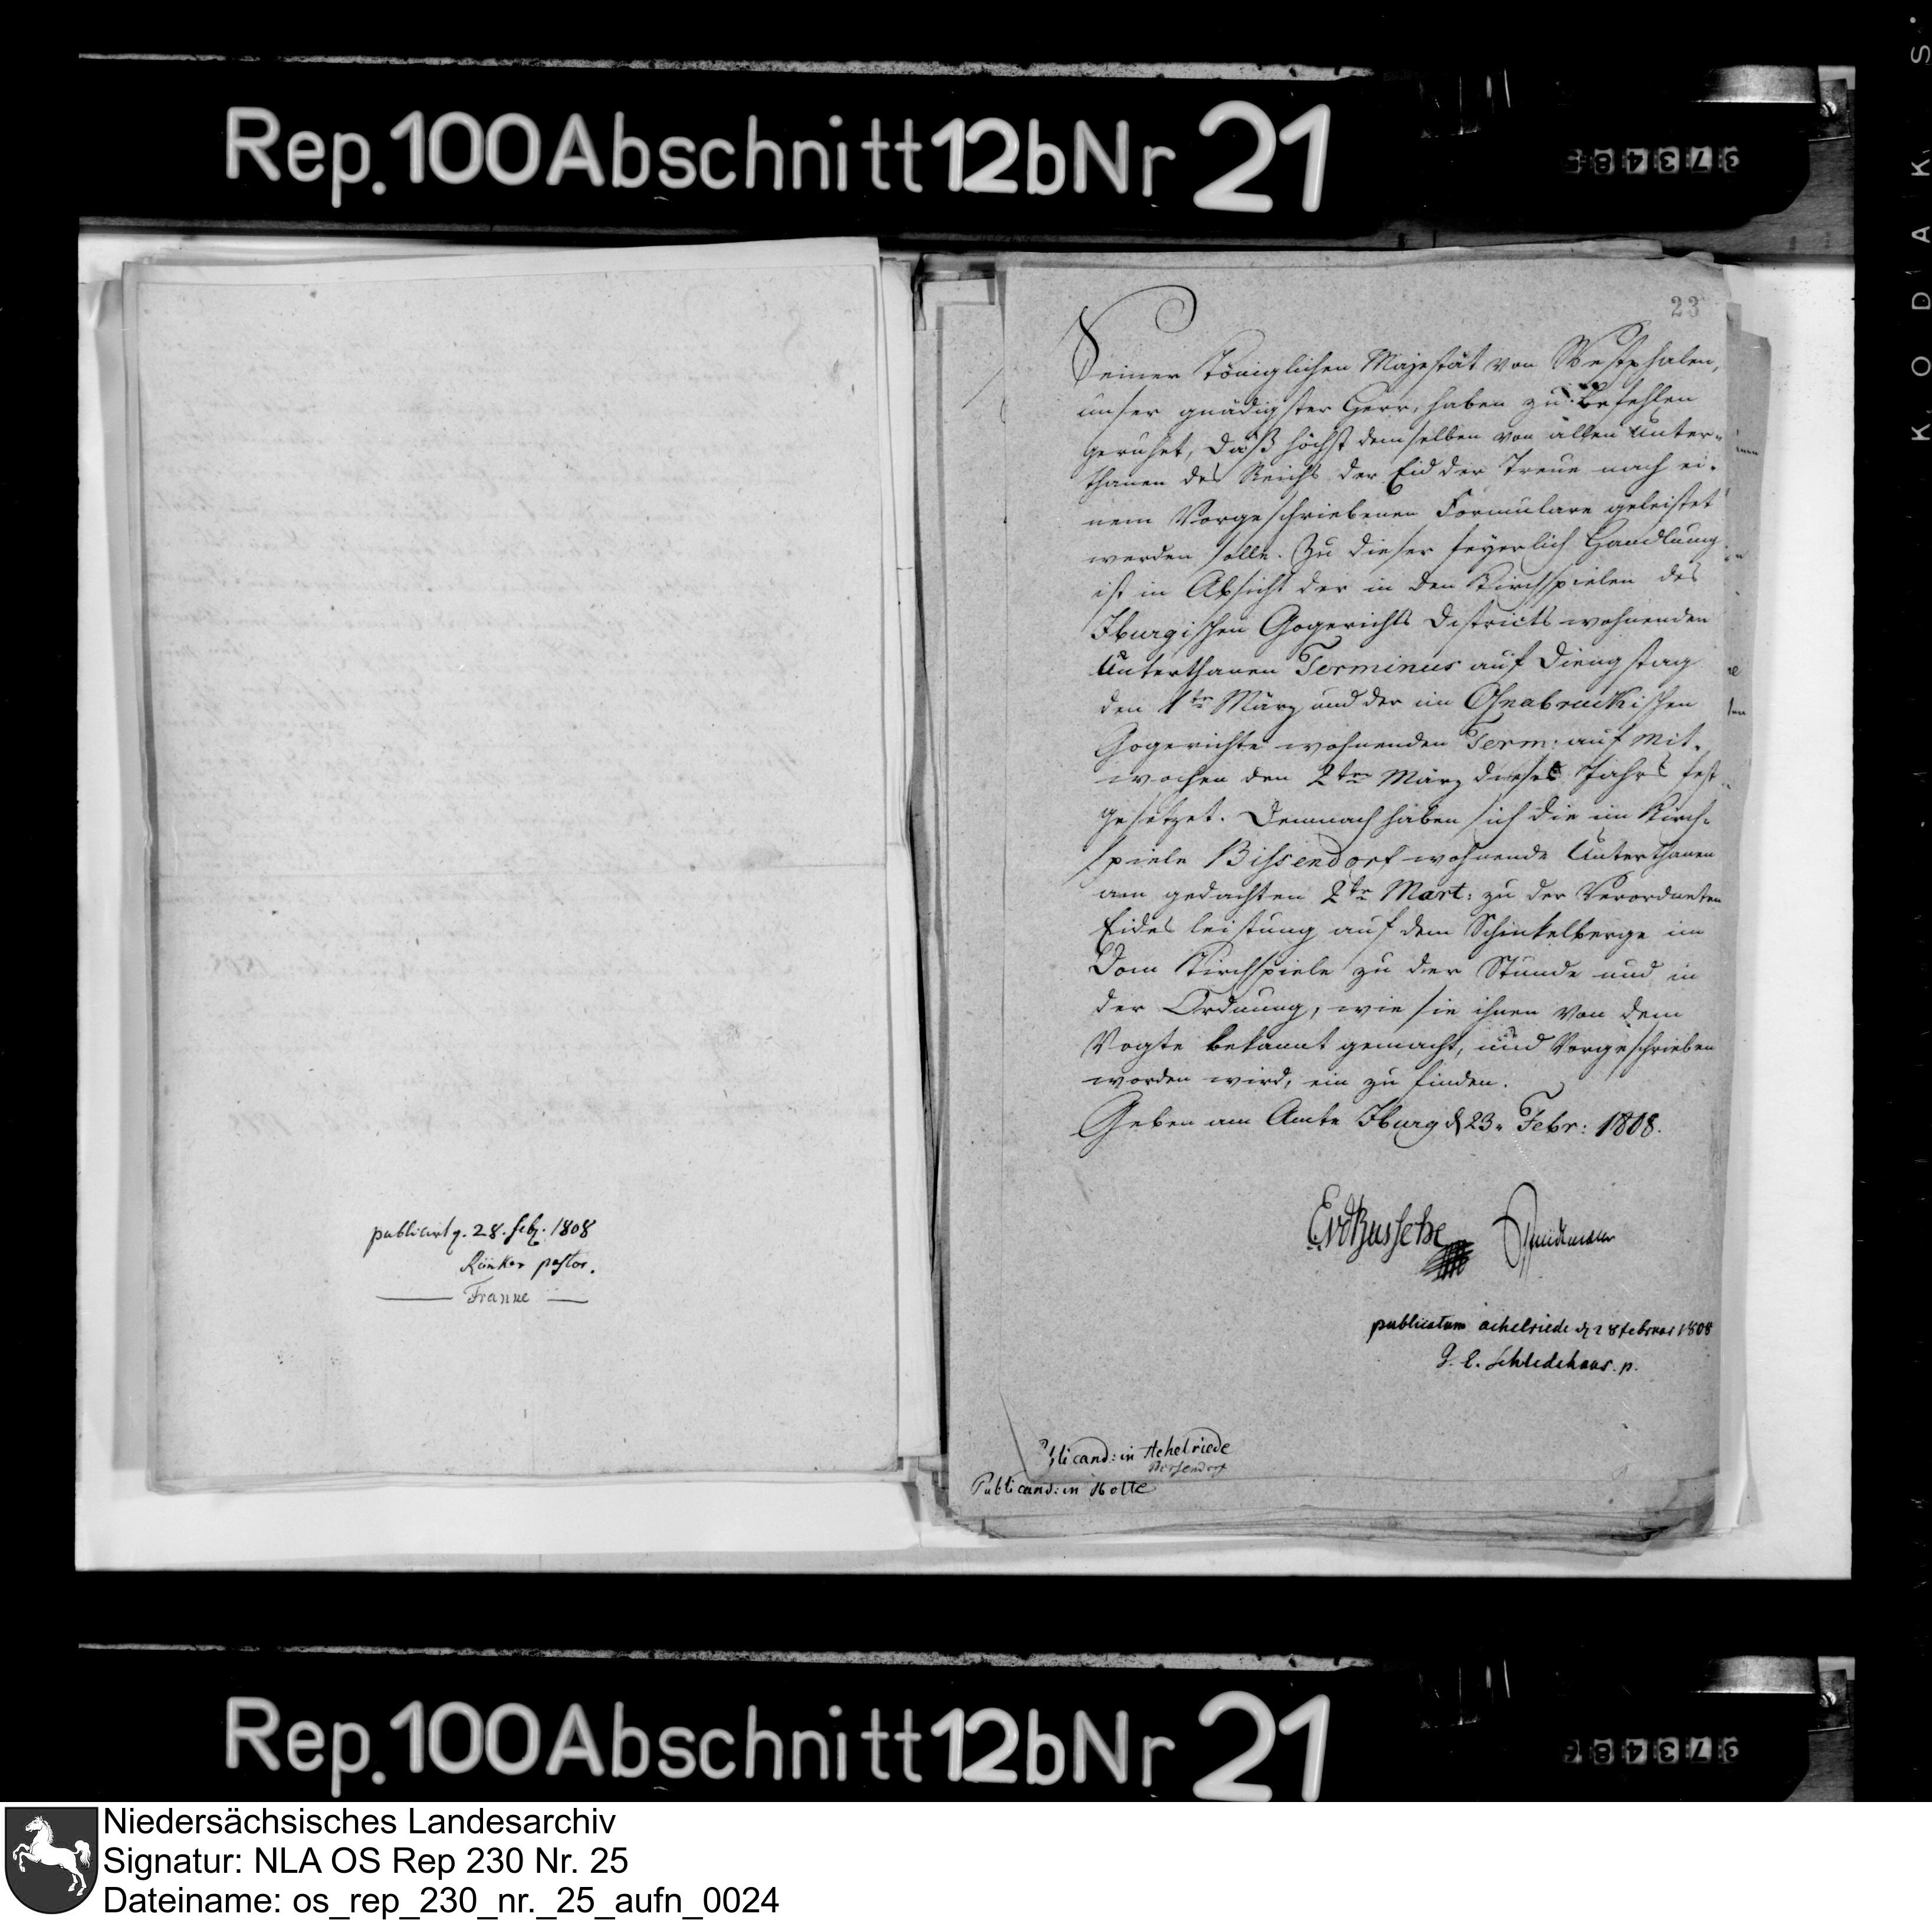 Rep. 100 Abschnitt 12b Nr 21
publicirt d. 28. feb. 1808
Rünker pastor.
Franke
23
Seiner Königlichen Majestät von Westphalen,
unser gnädigster Herr, haben zu befehlen
geruhet, daß höchst demselben von allen Unter-
thanen des Reichs der Eid der Treue nach ei-
nem Vorgeschriebenen Formulare geleistet
werden solle. Zu dieser feyerlich Handlung
ist in Absicht der in den Kirchspielen des
Iburgischen Gogerichts Districts wohnenden
Unterthanen Terminus auf Dienstag
den 1ten März und der im Osnabruckischen
Gogerichte wohnenden Term: auf Mit-
wochen den 2ten März dieses Jahrs fest-
gesetzet. Demnach haben sich die im Kirch-
spiele Bissendorf wohnende Unterthanen
am gedachten 2ten Mart: zu der Verordneten
Eides leistung auf dem Schinkelberge im
Dom Kirchspiele zu der Stunde und in
der Ordnung, wie sie ihnen von dem
Vogte bekannt gemacht, und Vorgeschrieben
worden wird, ein zu finden.
Geben am Amte Iburg d 23. Febr: 1808.
EvdBussche
publicatum achelriede d 28 februar 1808
G. E. Schledehaus. p.
Publicand: in Achelriede
Bissendorf
Publicand: in Holte
Rep. 100 Abschnitt 12b Nr 21
KODAK S
Niedersächsisches Landesarchiv
Signatur: NLA OS Rep 230 Nr. 25
Dateiname: os_rep_230_nr._25_aufn_0024